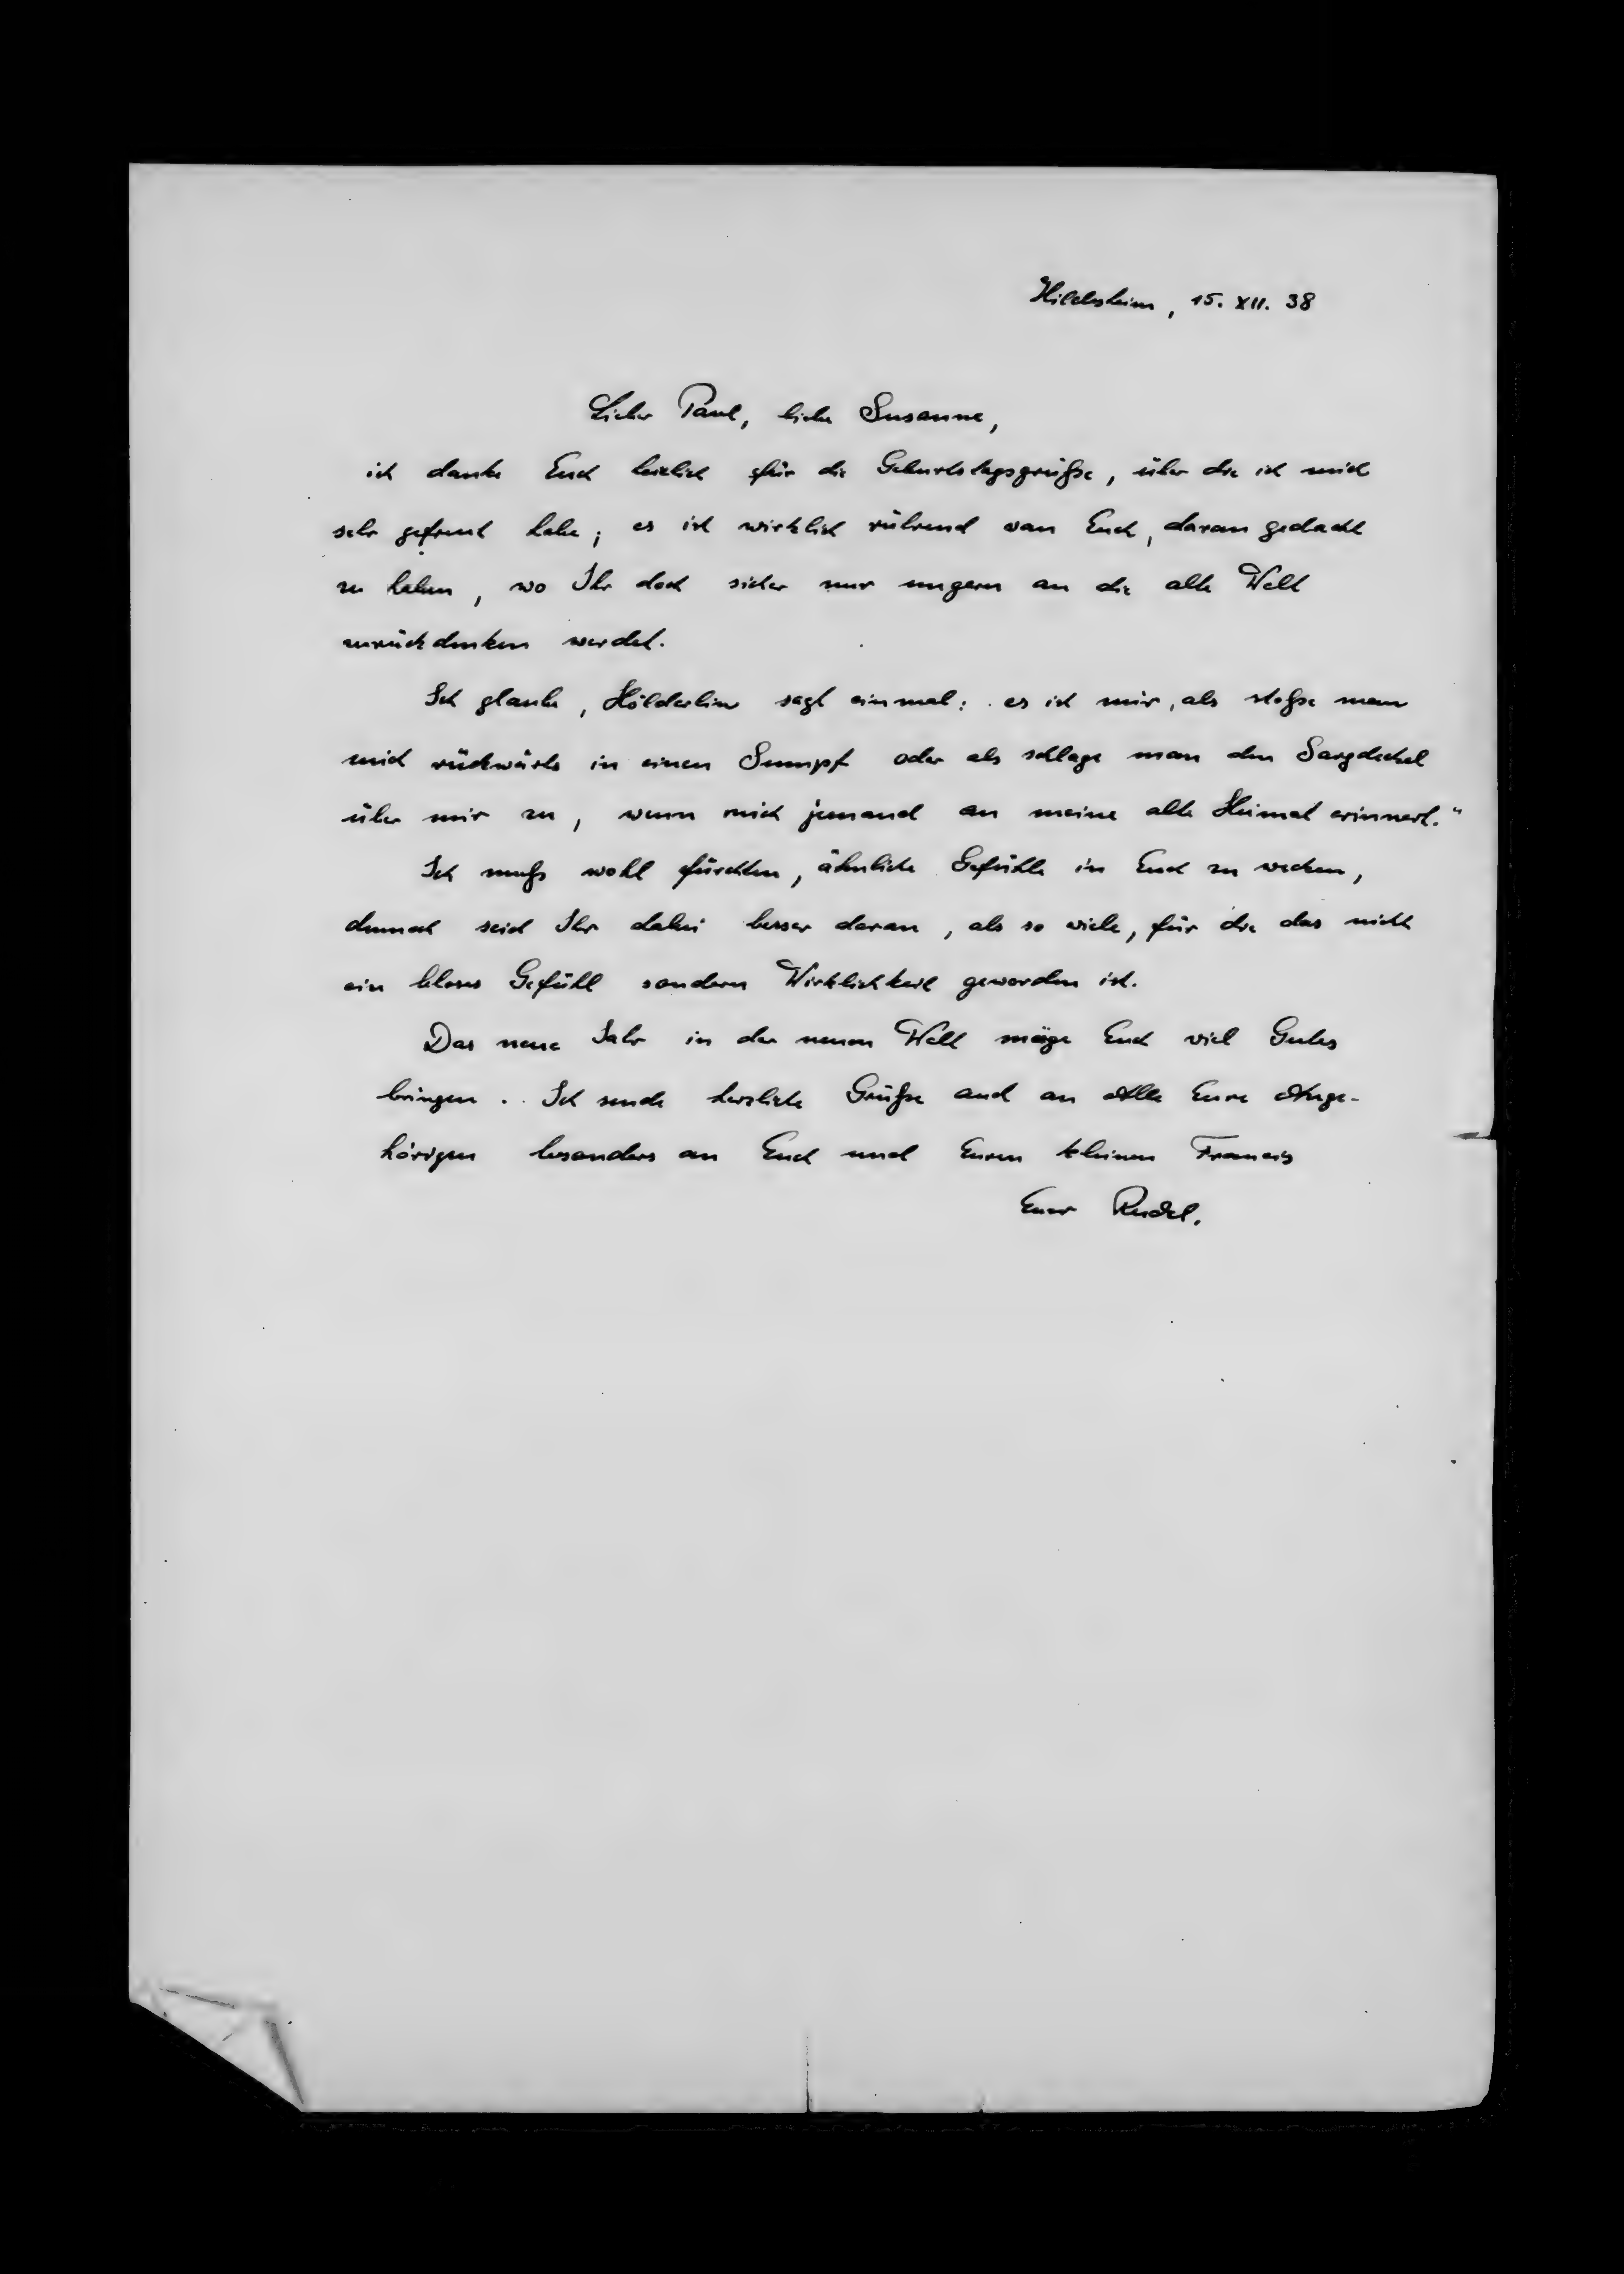 Hildesheim, 15. XII. 38
Lieber Paul, liebe Susanne,
ich danke Euch herzlich für die Geburtstagsgrüße, über die ich mich
sehr gefreut habe; es ist wirklich rührend von Euch, daran gedacht
zu haben, wo Ihr doch sicher nur ungern an die alte Welt
zurückdenken werdet.
Ich glaube, Hölderlin sagt einmal: es ist mir, als stoße man
mich rückwärts in einen Sumpf oder als schlage man den Sargdeckel
über mir zu, wenn mich jemand an meine alte Heimat erinnert."
Ich muß wohl fürchten, ähnliche Gefühle in Euch zu wecken,
dennoch seid Ihr dabei besser daran, als so viele, für die das nicht
ein bloses Gefühl sondern Wirklichkeit geworden ist.
Das neue Jahr in der neuen Welt möge Euch viel Gutes
bringen. Ich sende herzliche Grüße auch an Alle Eure Ange-
hörigen besonders an Euch und Euren kleinen Francis
Euer Rudel.